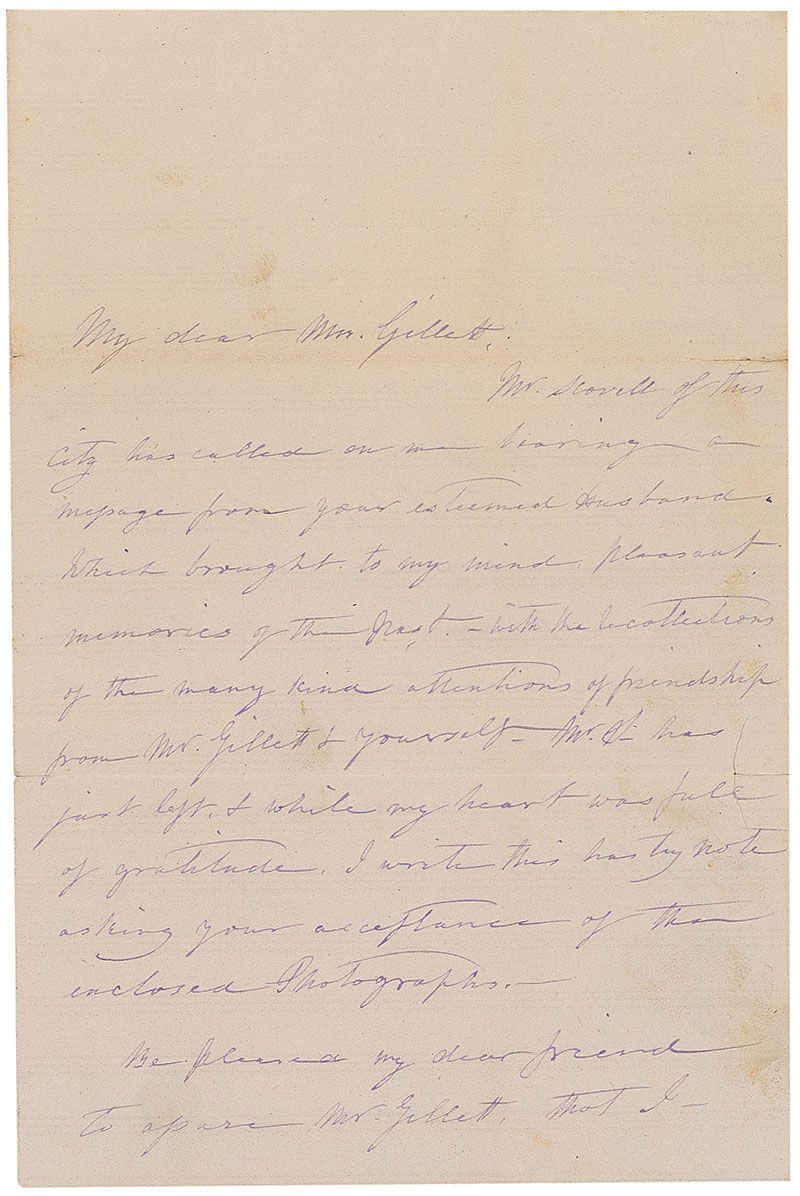 My dear Mrs. Gillett,
Mr. Scovell of this
City has called on me bearing a
message from your esteemed Husband.
Which brought to my mind, pleasant
memories of the Past. - With the recollections
of the many kind attentions of friendship
from Mr. Gillett & yourself - Mr. S- has
just left, & while my heart was full
of gratitude, I write this hasty note
asking your acceptance of the
enclosed Photographs. -
Be pleased my dear friend
to assure Mr. Gillett, that I -